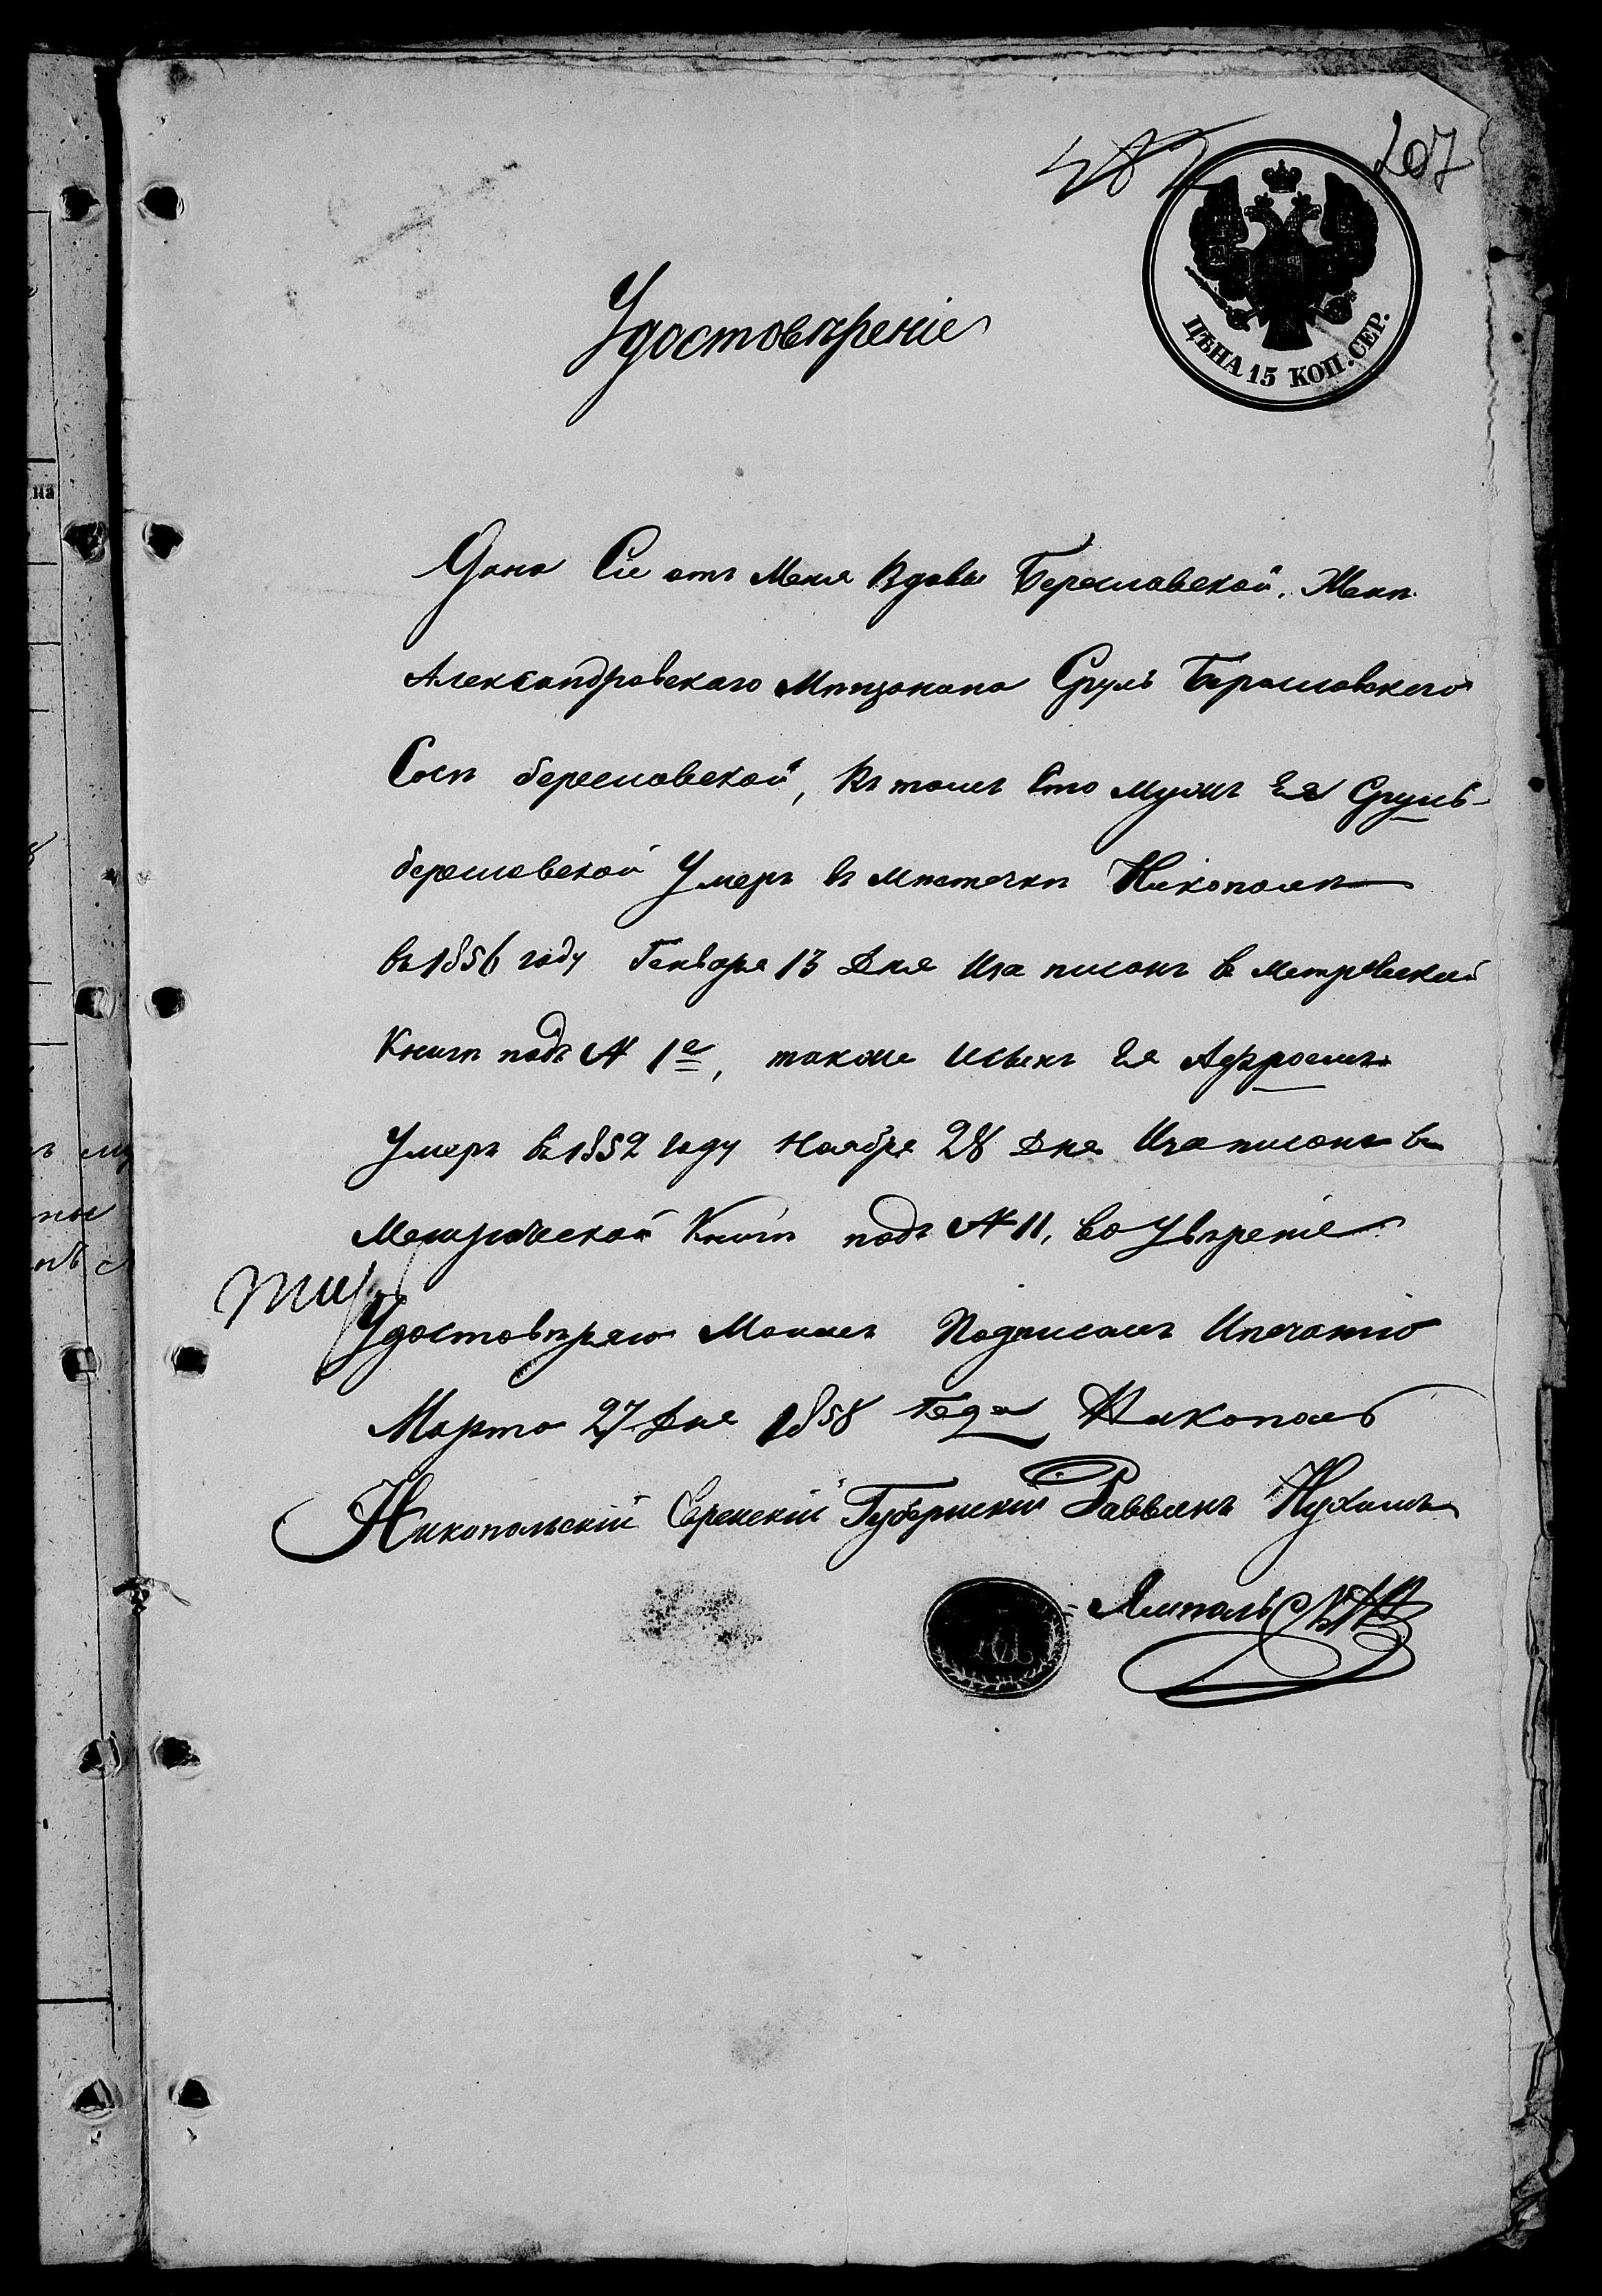 207
ЦѢНА 15 КОП. СЕР.
Удостовѣреніе
Дана Сіе отъ Меня Вдовы Береславской. Женѣ
Александровскаго Мѣщанина Сруль Береславскаго
Сосѣ береславской, Въ томъ Что мужъ Ея Сруль
береславской Умеръ въ мѣстечкѣ Никополѣ
въ 1856 году Генваря 13 Дня Иза писанъ в метрической
Книгѣ подъ № 1е, также Исынъ Ея
Умеръ въ 1852 году Ноября 28 Дня Иза писанъ в
Метрической Книгѣ подъ № 11, во Увѣреніе
Удостовѣряю Моимъ Подписомъ Ипечатю
Марта 27 Дня 1858 Года Никополь
Никопольскій Еврейскій Губернскій Раввинъ Нухимъ
Ямполь
на